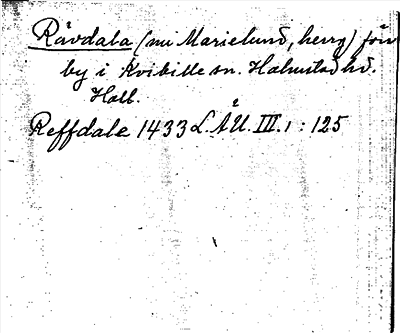 Rävdala (nu Marielund, herrg) förr
by i Kvibille sn. Halmstad hd.
Hall.
Reffdale 1433 L. ÅU. III. 1 : 125